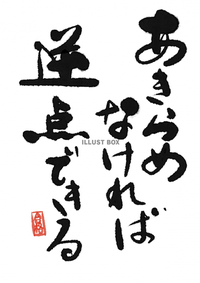 あきらめ
なければ
逆点できる
ILLUST BOX